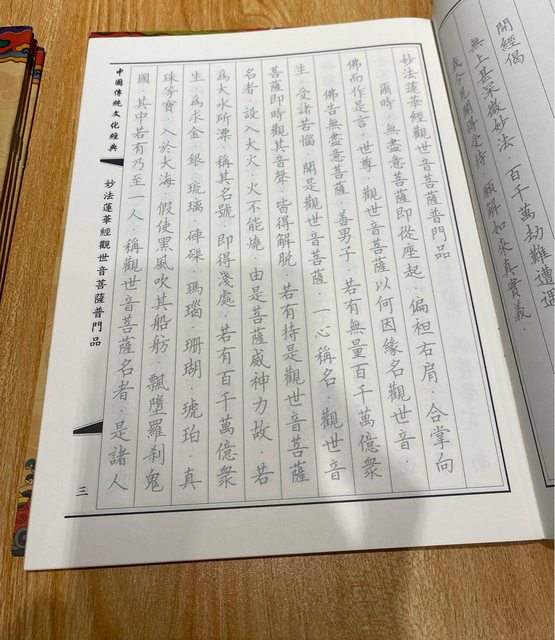 開經偈
無上甚深微妙法·百千萬劫難遭遇·
我今見聞得受持·願解如來真實義·
妙法蓮華經觀世音菩薩普門品
爾時·無盡意菩薩即從座起·偏袒右肩·合掌向
佛而作是言·世尊·觀世音菩薩以何因緣名觀世音·
佛告無盡意菩薩·善男子·若有無量百千萬億衆
生·受諸苦惱·聞是觀世音菩薩·一心稱名·觀世音
菩薩即時觀其音聲·皆得解脫·若有持是觀世音菩薩
名者·設入大火·火不能燒·由是菩薩威神力故·若
爲大水所漂·稱其名號·即得淺處·若有百千萬億衆
生·爲求金·銀·琉璃·硨磲·瑪瑙·珊瑚·琥珀·真
珠等寶·入於大海·假使黑風吹其船舫·飄墮羅刹鬼
國·其中若有乃至一人·稱觀世音菩薩名者·是諸人
中國傳統文化經典
妙法蓮華經觀世音菩薩普門品
三